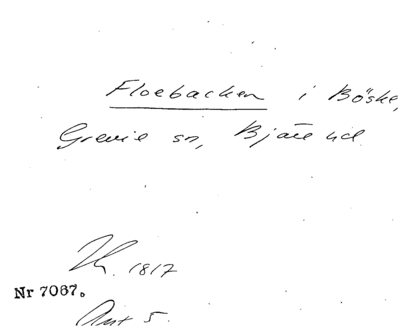 Floebacken i Böske,
Grevie sn, Bjäre hd.
1817
Nr 7067.
Ant 5.